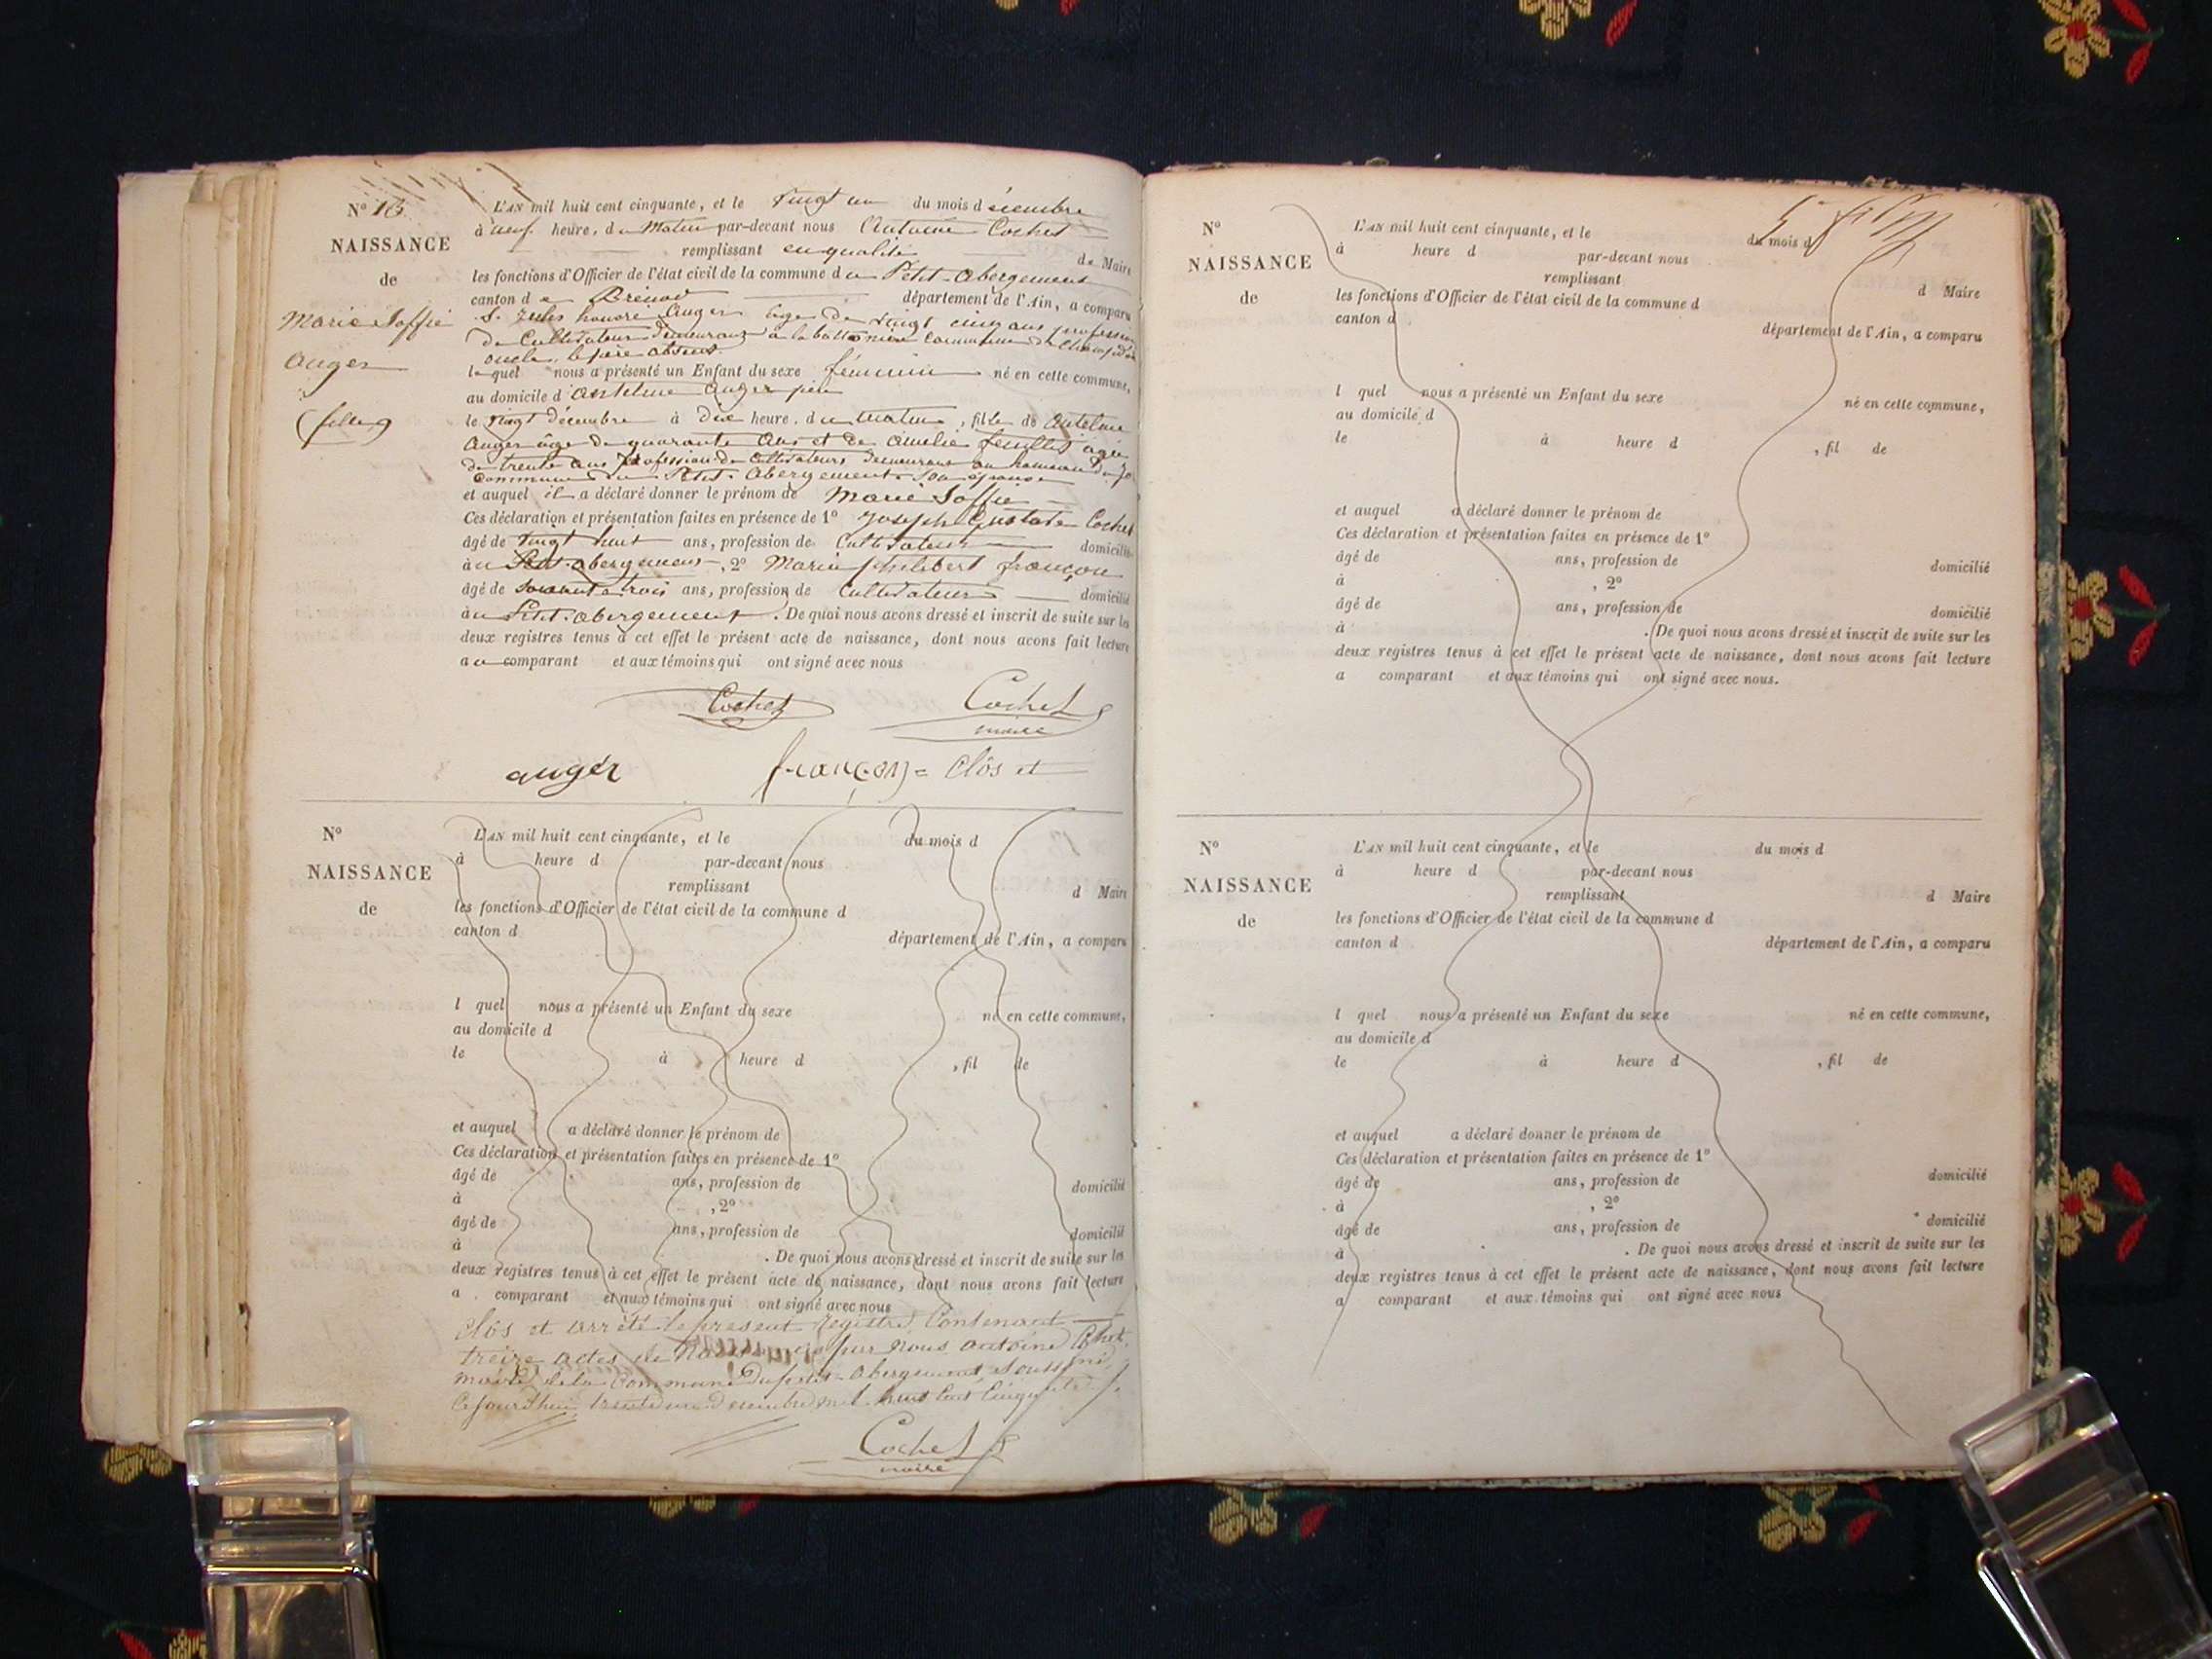 N° 13
NAISSANCE
de
Marie Soffie
Auger
(fille)
L'AN mil huit cent cinquante, et le vingt un du mois décembre
à neuf heure, du Matin par-devant nous Antoine Cochet
remplissant en qualité de Maire
les fonctions d'Officier de l'état civil de la commune du Petit-abergement
canton de Brénod département de l'Ain, a comparu
Sr Jules honoré Auger âgé de vingt cinq ans profession
de Cultivateur demeurant à commune de
oncle, le père absent
lequel nous a présenté un Enfant du sexe féminin né en cette commune,
au domicile d'antelme Auger père
le vingt décembre à dix heure, du matin, fille de Antelme
Auger âgé de quarante ans et de Amélie âgée
de trente ans profession de Cultivateurs demeurant au hameau
commune du Petit-abergement son épouse
et auquel il a déclaré donner le prénom de Marie Soffie
Ces déclaration et présentation faites en présence de 1° Joseph Gustave Cochet
âgé de vingt huit ans, profession de Cultivateur domicilié
à au Petit-abergement, 2° Marie philibert françon
âgé de soixante trois ans, profession de Cultivateur domicilié
à au Petit-abergement. De quoi nous avons dressé et inscrit de suite sur les
deux registres tenus à cet effet le présent acte de naissance, dont nous avons fait lecture
au comparant et aux témoins qui ont signé avec nous
Cochet Cochet
maire
auger françon = Clôs et
N°
NAISSANCE
de
L'AN mil huit cent cinquante, et le du mois d
à heure d par-devant nous
remplissant d Maire
les fonctions d'Officier de l'état civil de la commune d
canton d département de l'Ain, a comparu
l quel nous a présenté un Enfant du sexe né en cette commune,
au domicile d
le à heure d , fil de
et auquel a déclaré donner le prénom de
Ces déclaration et présentation faites en présence de 1°
âgé de ans, profession de domicilié
à , 2°
âgé de ans, profession de domicilié
à . De quoi nous avons dressé et inscrit de suite sur les
deux registres tenus à cet effet le présent acte de naissance, dont nous avons fait lecture
a comparant et aux témoins qui ont signé avec nous
Clôs et arrêté le présent registre Contenant
treize actes de Naissances par nous antoine Cochet
maire de la Commune du petit-abergement, Soussigné,
Cejourdhui trente un décembre mil huit cent cinquante
Cochet
maire
N°
NAISSANCE
de
L'AN mil huit cent cinquante, et le du mois d
à heure d par-devant nous
remplissant d Maire
les fonctions d'Officier de l'état civil de la commune d
canton d département de l'Ain, a comparu
l quel nous a présenté un Enfant du sexe né en cette commune,
au domicile d
le à heure d , fil de
et auquel a déclaré donner le prénom de
Ces déclaration et présentation faites en présence de 1°
âgé de ans, profession de domicilié
à , 2°
âgé de ans, profession de domicilié
à . De quoi nous avons dressé et inscrit de suite sur les
deux registres tenus à cet effet le présent acte de naissance, dont nous avons fait lecture
a comparant et aux témoins qui ont signé avec nous.
N°
NAISSANCE
de
L'AN mil huit cent cinquante, et le du mois d
à heure d par-devant nous
remplissant d Maire
les fonctions d'Officier de l'état civil de la commune d
canton d département de l'Ain, a comparu
l quel nous a présenté un Enfant du sexe né en cette commune,
au domicile d
le à heure d , fil de
et auquel a déclaré donner le prénom de
Ces déclaration et présentation faites en présence de 1°
âgé de ans, profession de domicilié
à , 2°
âgé de ans, profession de domicilié
à . De quoi nous avons dressé et inscrit de suite sur les
deux registres tenus à cet effet le présent acte de naissance, dont nous avons fait lecture
a comparant et aux témoins qui ont signé avec nous